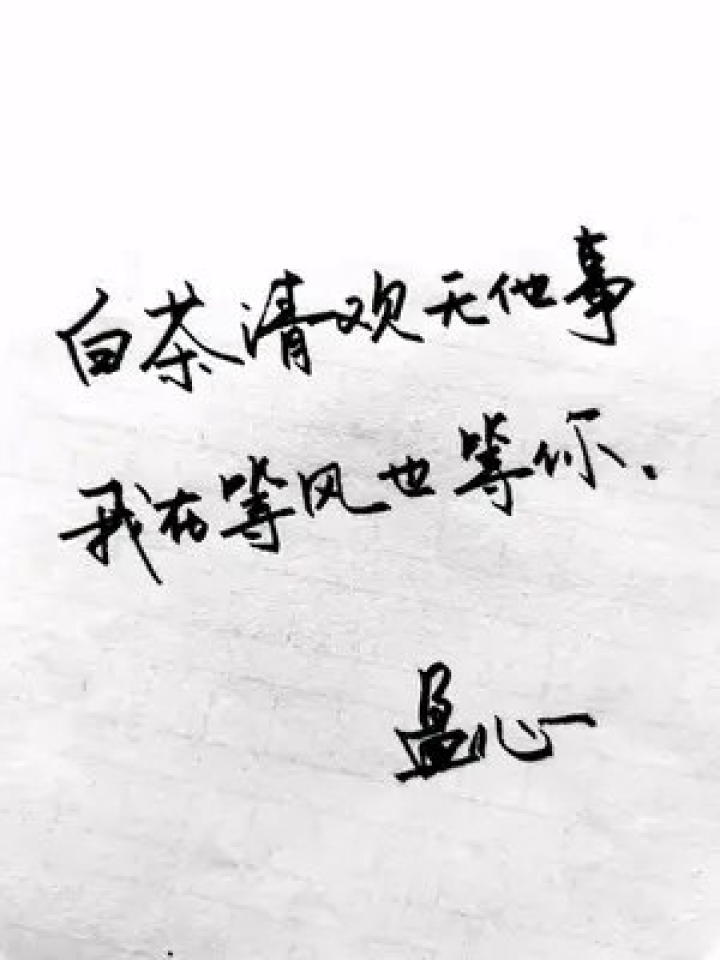 白茶清欢无他事
我在等风也等你、